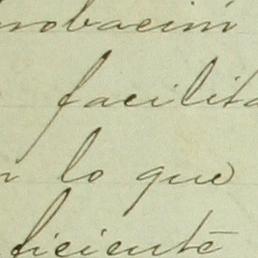 robación
facilita
n lo que
ficiente